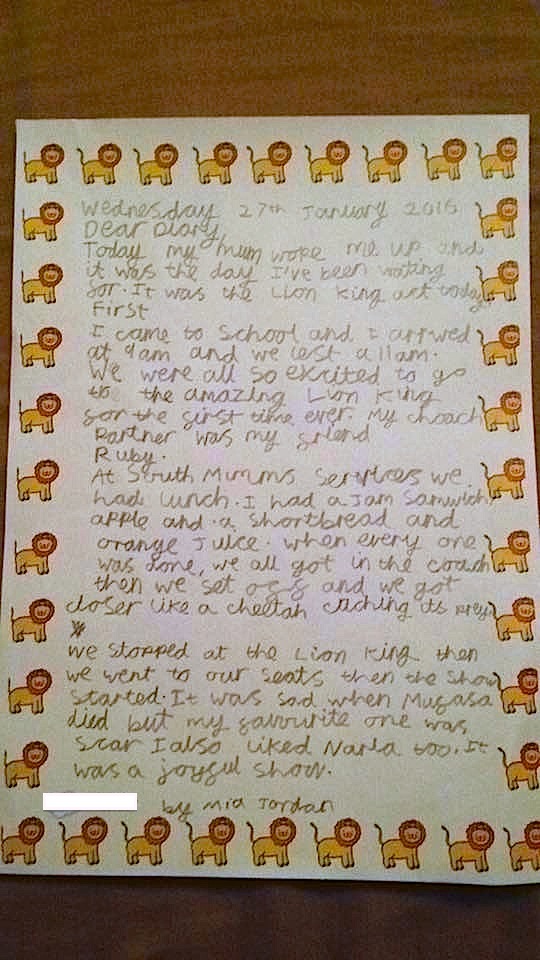 Wednesday 27th January 2016
Dear Diary,
Today my mum woke me up and
it was the day I've been waiting
for. It was the Lion King art today
First
I came to School and I arrived
at 9am and we lest a 11am.
We were all so excited to go
to the amazing Lion King
for the first time ever. My choach
Partner was my friend
Ruby.
At South Mimms Services we
had lunch. I had a Jam Samwich,
apple and a shortbread and
orange Juice. when every one
was done, we all got in the coach
then we set off and we got
closer like a cheetah caching its prey
we stopped at the Lion King then
we went to our seats then the show
started. It was sad when Mufasa
died but my favourite one was
Scar I also liked Narla too. It
was a joyful show.
by Mia Jordan